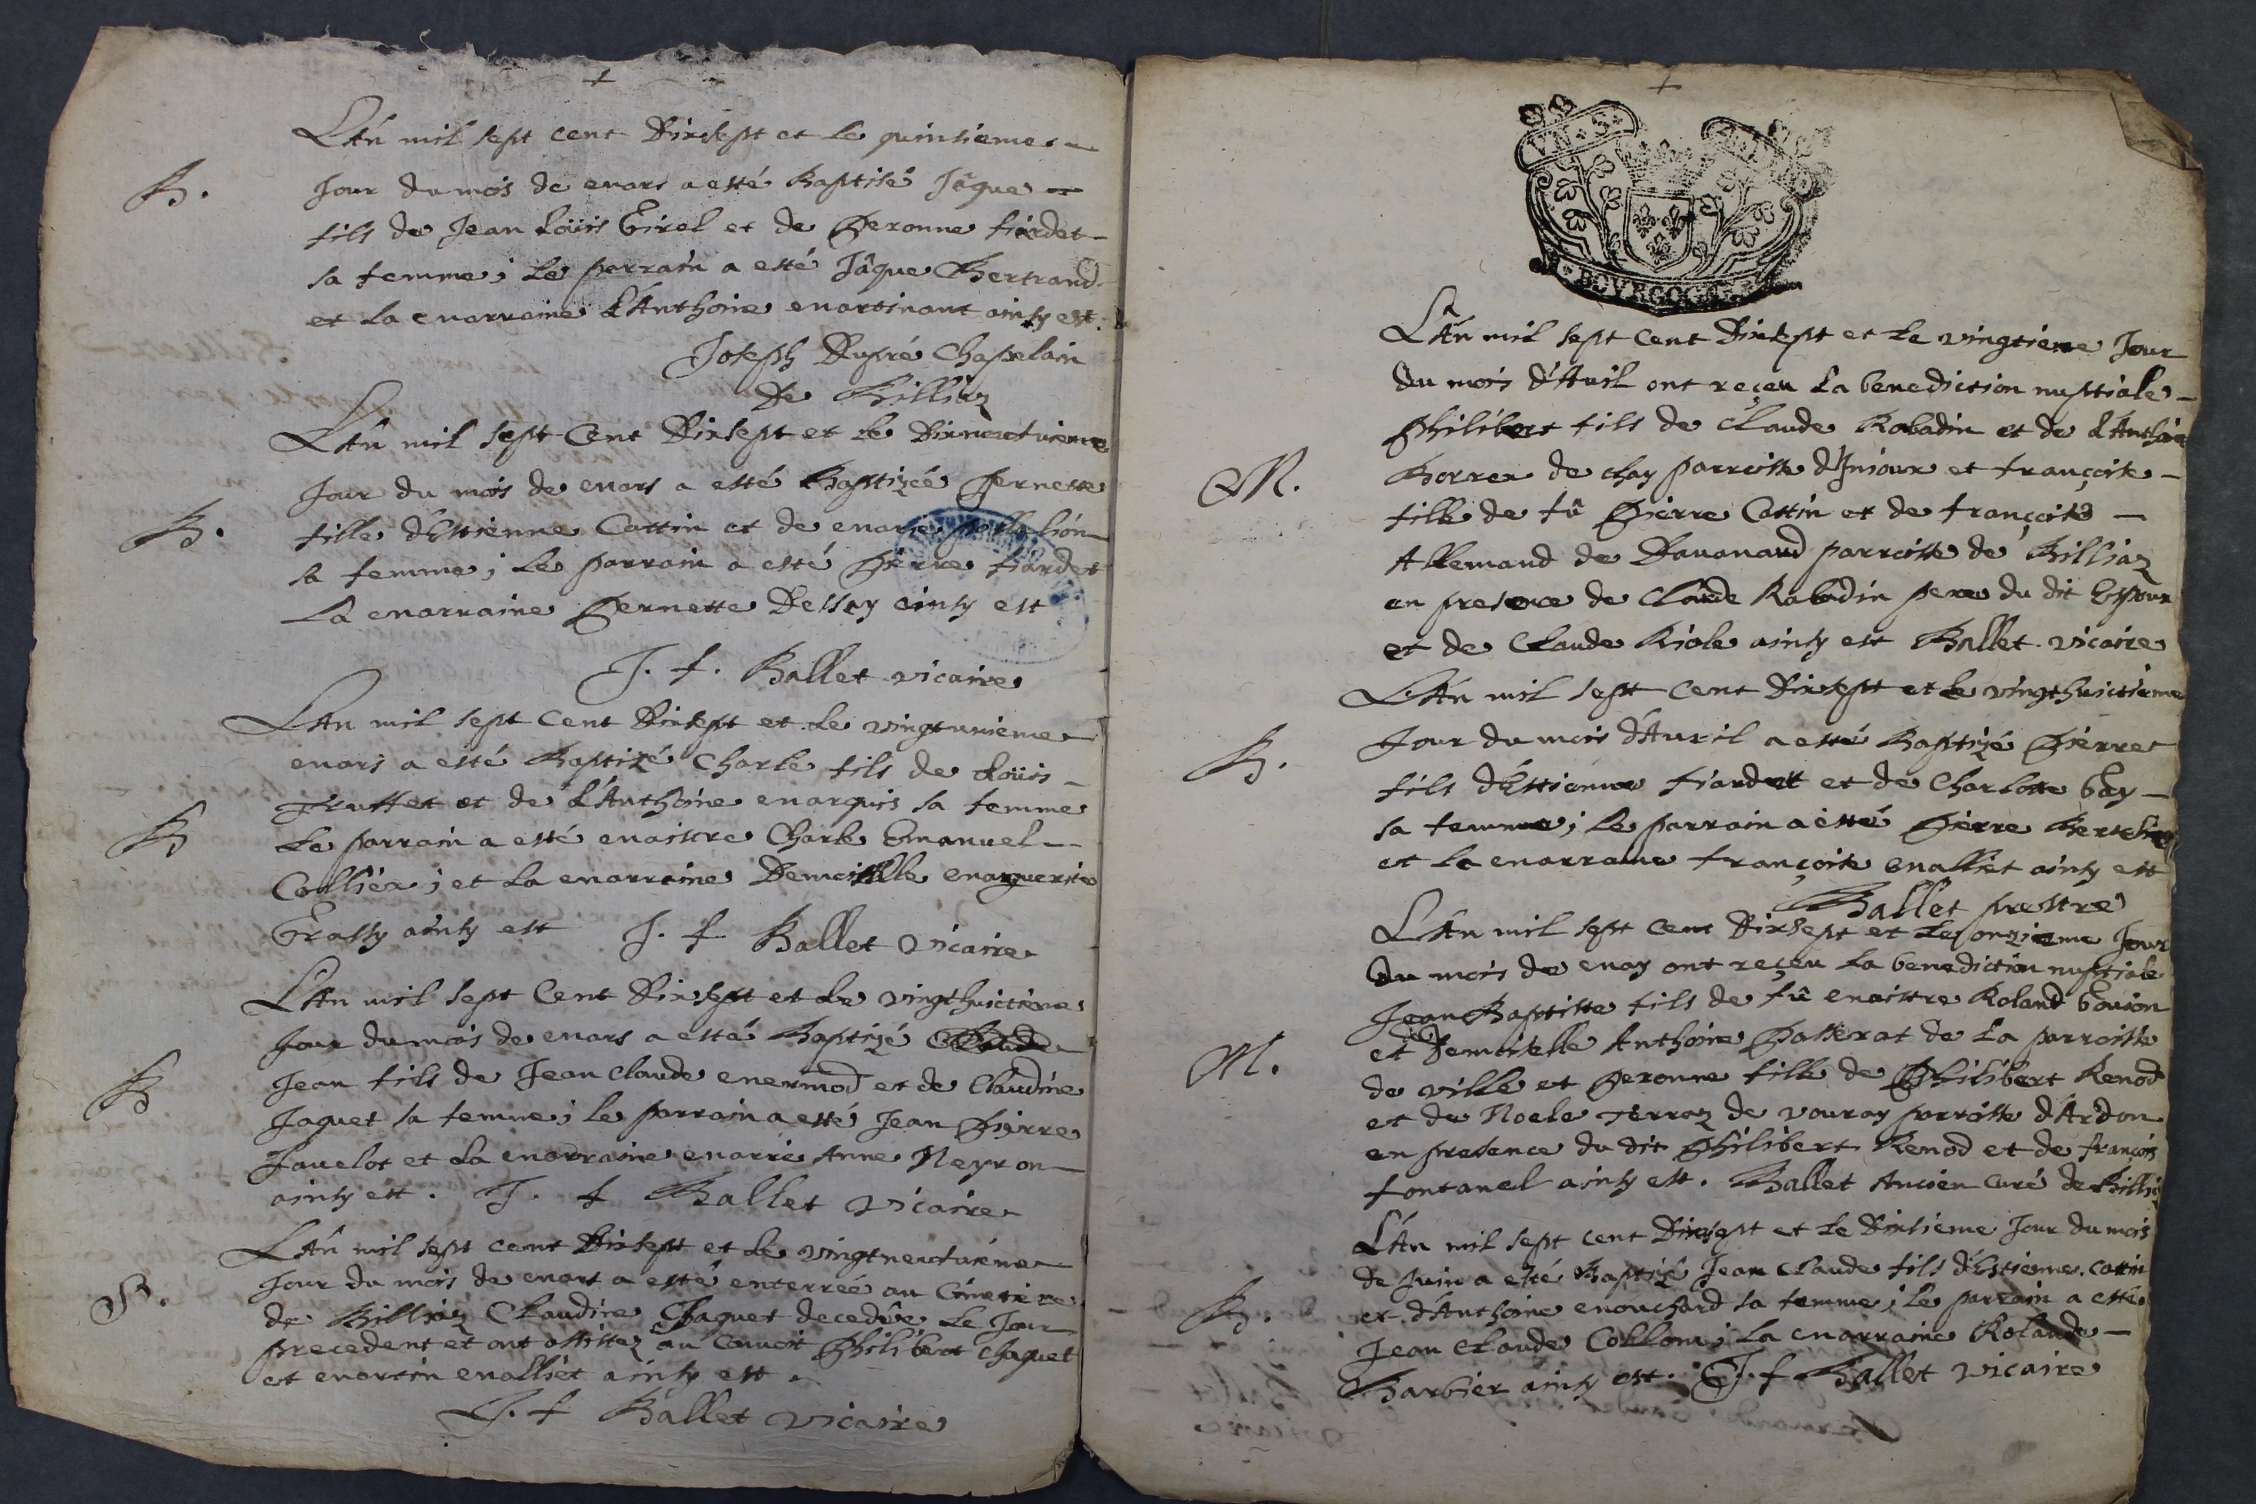 L'An mil sept cent Dixsept et le quinsieme
B.
Jour du mois de mars a esté Baptisé Jâque
fils de Jean Loüis Girel et de Peronne fiardet
sa femme; Le parrain a esté Jâque Bertrand
et La marraine L'Anthoine martinant ainsy est.
Joseph Dupré Chapelain
De Billiaz
L'An mil sept Cent Dixsept et le Dixneufvieme
Jour du mois de mars a esté Baptizée Pernette
B.
fille d'Estienne Cottin et de marie
sa femme; Le parrain a esté Pierre fiardet
La marraine Pernette Dessay ainsy est
J. f. Ballet vicaire
L'An mil sept Cent Dixsept et Le vingtunieme
mars a esté Baptizé Charle fils de Loüis
Truffet et de L'Anthoine marquis sa femme
B
Le parrain a esté maistre Charle Emanuel
Collier; et La marraine Demoiselle marguerite
Grassy ainsy est J. f Ballet vicaire
L'An mil sept Cent Dixsept et Le vingthuictieme
Jour du mois de mars a esté Baptizé
B
Jean fils de Jean Claude mermod et de Claudine
Jaquet sa femme; le parrain a esté Jean Pierre
Javelot et La marraine marie Anne Neyron
ainsy est. J. f Ballet vicaire
L'An mil sept cent Dixsept et Le vingtneufvieme
Jour du mois de mars a esté enterrée au Cimetiere
S.
de Billiaz Claudine Chaquet decedûe Le Jour
precedent et ont assistez au Convoit Philibert Chaquet
et martin malliet ainsy est.
J. f Ballet vicaire
BOVRGOGNE
L'An mil sept cent Dixsept et Le vingtieme Jour
du mois d'Auril ont reçeu La benediction nuptiale
Philibert fils de Claude Rabadin et de L'Anthoine
M.
Borrex de Chay parroisse d'Injoux et françoise
fille de fû Pierre Cottin et de françoise
Allemand de Davanaud parroisse de Billiaz
en presence de Claude Rabadin pere du dit Espoux
et de Claude Riole ainsy est Ballet vicaire
L'An mil sept cent Dixsept et Le vingthuictieme
Jour du mois d'Auril a esté Baptizé Pierre
B.
fils d'Estienne fiardet et de Charlotte Gay
sa femme; Le parrain a esté Pierre
et La marraine françoise malliet ainsy est
Ballet prestre
L'An mil sept cent Dixsept et Le onzieme Jour
du mois de may ont reçeu La benediction nuptiale
Jean Baptiste fils de fû maistre Roland Goujon
et Demoiselle Anthoine Passerat de La parroisse
M.
de ville et Peronne fille de Philibert Renod
et de Noele Terraz de vouray parroisse d'Ardon
en presence du dit Philibert Renod et de françois
fontanel ainsy est. Ballet Ancien curé de Billiaz
L'An mil sept cent Dixsept et Le Dixsieme Jour du mois
de Juin a esté Baptizé Jean Claude fils d'Estienne Cottin
B.
et d'Anthoine mouchard sa femme; le parrain a esté
Jean Claude Collom; La marraine Rolande
Barbier ainsy est. J. f Ballet vicaire